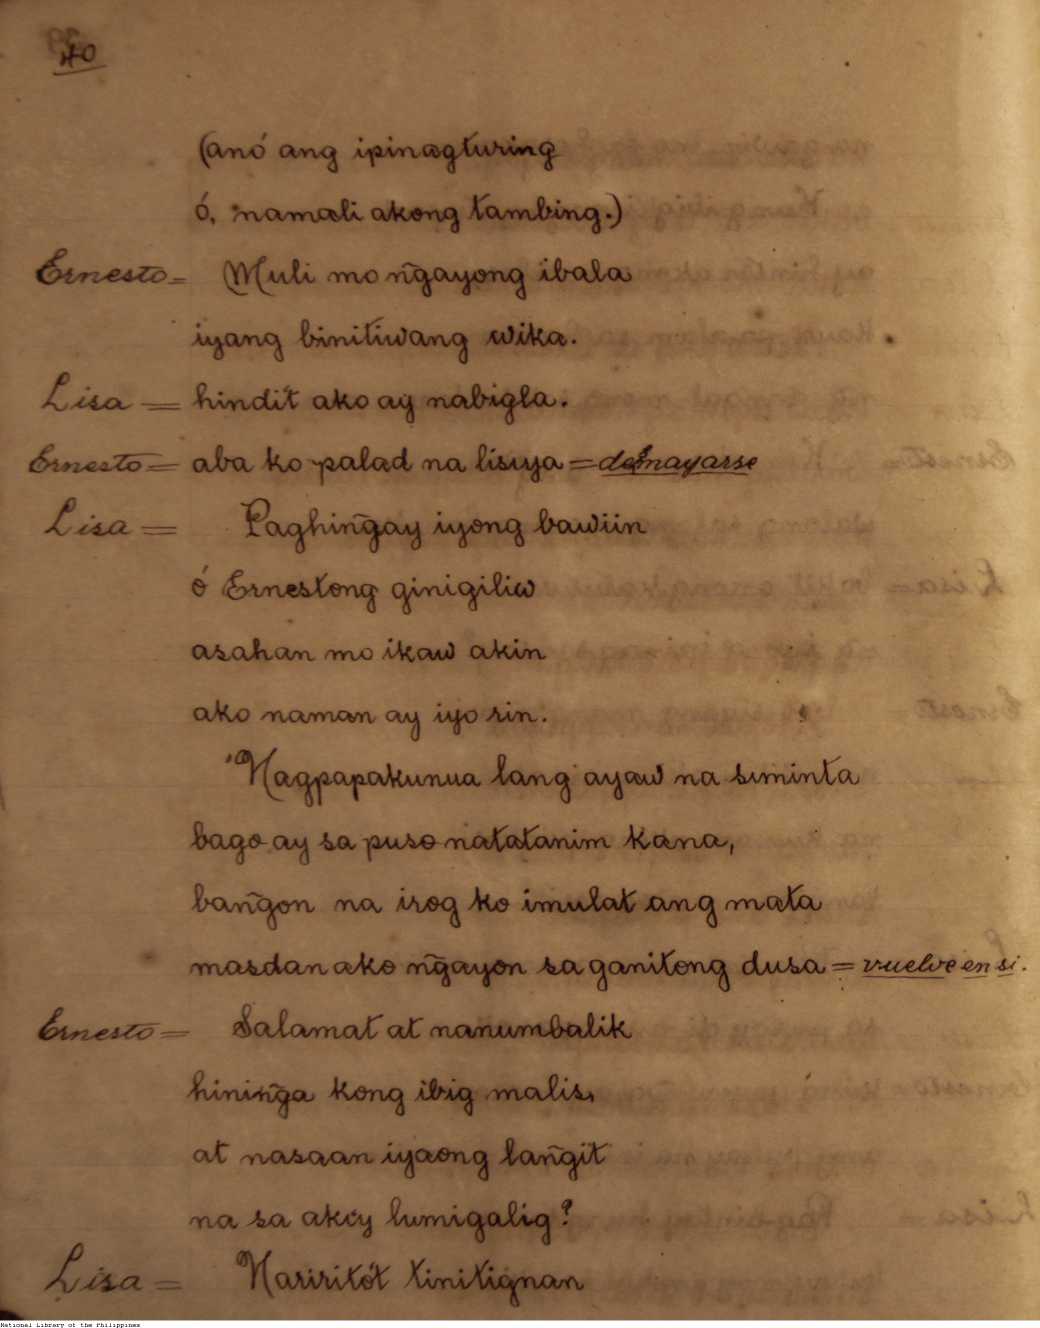 40
(anó ang ipinagturing
ó, namali akong tambing.)
Ernesto = Muli mo n̄gayong ibala
iyang binitiwang wika.
Lisa = hindit ako ay nabigla.
Ernesto = aba ko palad na lisiya = desmayarse
Lisa = Paghin̄gay iyong bawiin
ó Ernestong ginigiliw
asahan mo ikaw akin
ako naman ay iyo rin.
Nagpapakunua lang ayaw na suminta
bago ay sa puso natatanim kana,
ban̄gon na irog ko imulat ang mata
masdan ako n̄gayon sa ganitong dusa = vuelve en si.
Ernesto = Salamat at nanumbalik
hinin̄ga kong ibig malis,
at nasaan iyaong lan̄git
na sa akiy lumigalig?
Lisa = Nariritót tinitignan
National Library of the Philippines